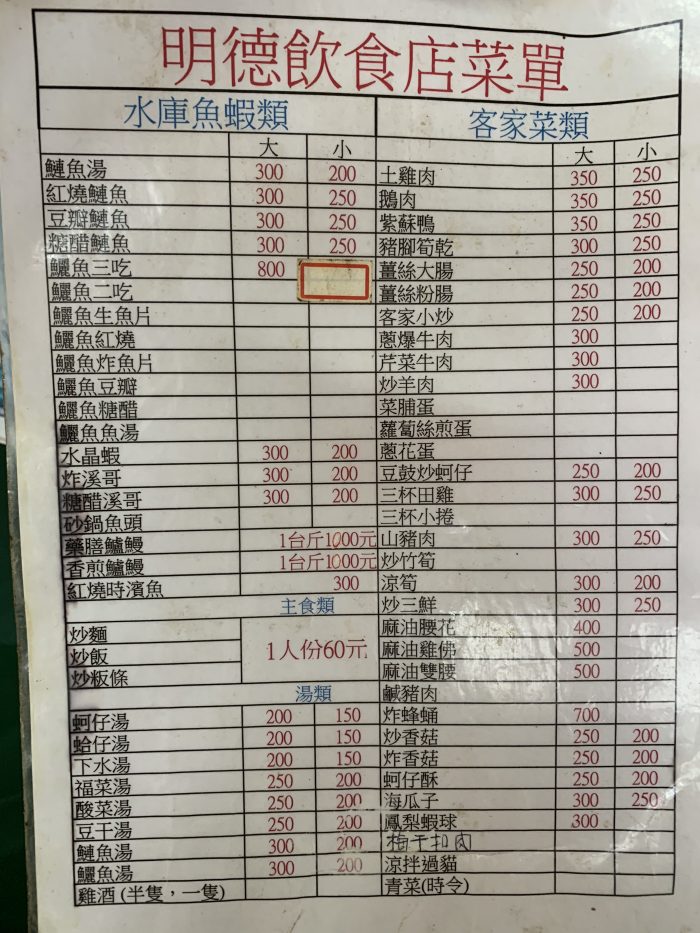 明德飲食店菜單
水庫魚蝦類
大 小
鰱魚湯 300 200
紅燒鰱魚 300 250
豆瓣鰱魚 300 250
糖醋鰱魚 300 250
鱺魚三吃 800
鱺魚二吃
鱺魚生魚片
鱺魚紅燒
鱺魚炸魚片
鱺魚豆瓣
鱺魚糖醋
鱺魚魚湯
水晶蝦 300 200
炸溪哥 300 200
糖醋溪哥 300 200
砂鍋魚頭
藥膳鱸鰻 1台斤1000元
香煎鱸鰻 1台斤1000元
紅燒時濱魚 300
主食類
炒麵
炒飯 1人份60元
炒粄條
湯類
蚵仔湯 200 150
蛤仔湯 200 150
下水湯 200 150
福菜湯 250 200
酸菜湯 250 200
豆干湯 250 200
鰱魚湯 300 200
鱺魚湯 300 200
雞酒(半隻，一隻)
客家菜類
大 小
土雞肉 350 250
鵝肉 350 250
紫蘇鴨 350 250
豬腳筍乾 300 250
薑絲大腸 250 200
薑絲粉腸 250 200
客家小炒 250 200
蔥爆牛肉 300
芹菜牛肉 300
炒羊肉 300
菜脯蛋
蘿蔔絲煎蛋
蔥花蛋
豆鼓炒蚵仔 250 200
三杯田雞 300 250
三杯小捲
山豬肉 300 250
炒竹筍
涼筍 300 200
炒三鮮 300 250
麻油腰花 400
麻油雞佛 500
麻油雙腰 500
鹹豬肉
炸蜂蛹 700
炒香菇 250 200
炸香菇 250 200
蚵仔酥 250 200
海瓜子 300 250
鳳梨蝦球 300
梅干扣肉
涼拌過貓
青菜(時令)